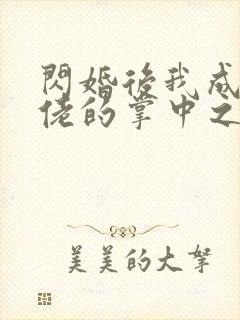 閃婚後我成
佬的掌中之
美美的大拏